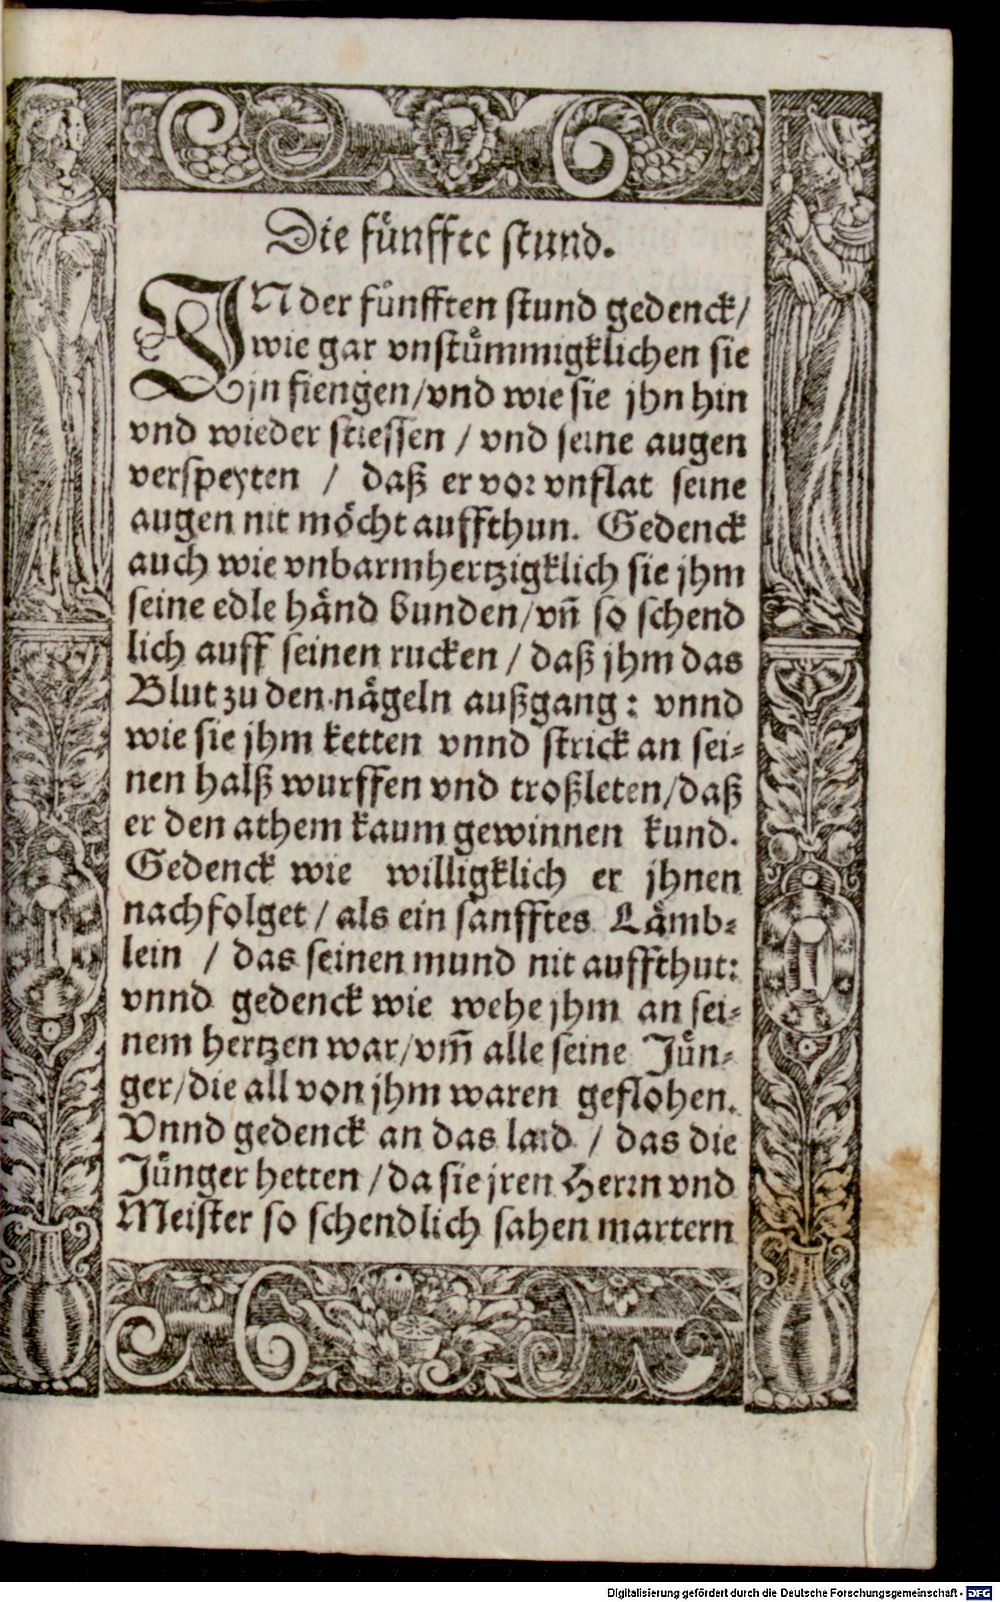 Die fuͤnffte stund.
IN der fuͤnfften stund gedenck/
wie gar vnstuͤmmigklichen sie
jn fiengen/vnd wie sie jhn hin
vnd wieder stiessen / vnd seine augen
verspeyten / daß er vor vnflat seine
augen nit moͤcht auffthun. Gedenck
auch wie vnbarmhertzigklich sie jhm
seine edle haͤnd bunden/vñ so schend
lich auff seinen rucken / daß jhm das
Blut zu den naͤgeln außgang: vnnd
wie sie jhm ketten vnnd strick an sei-
nen halß wurffen vnd troßleten/daß
er den athem kaum gewinnen kund.
Gedenck wie willigklich er jhnen
nachfolget / als ein sanfftes Laͤmb-
lein / das seinen mund nit auffthut:
vnnd gedenck wie wehe jhm an sei-
nem hertzen war/vm̃ alle seine Juͤn-
ger/die all von jhm waren geflohen.
Vnnd gedenck an das laid / das die
Juͤnger hetten / da sie jren Herrn vnd
Meister so schendlich sahen martern
Digitalisierung gefördert durch die Deutsche Forschungsgemeinschaft - DFG